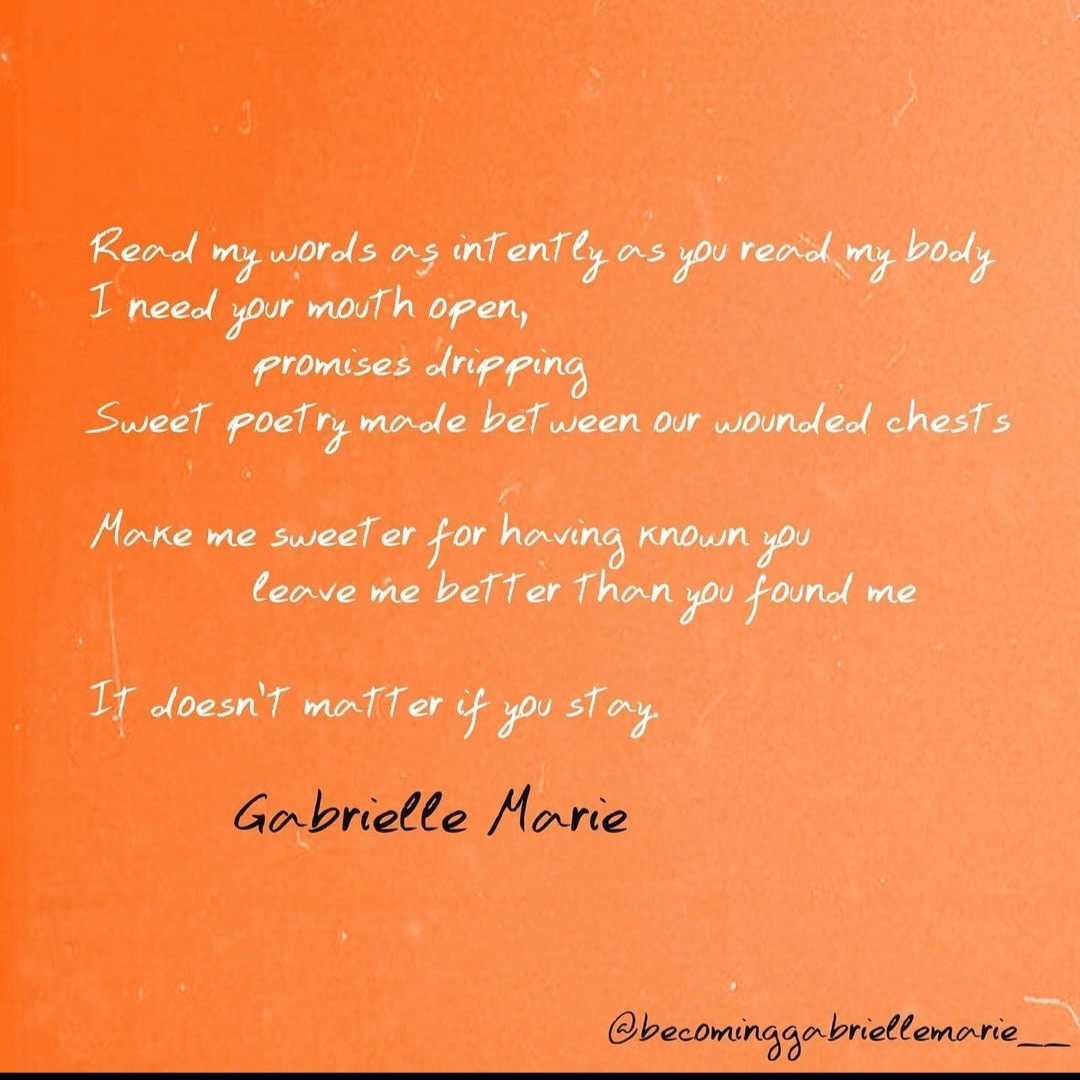 Read my words as intently as you read my body
I need your mouth open,
promises dripping
Sweet poetry made between our wounded chests
Make me sweeter for having known you
leave me better than you found me
It doesn't matter if you stay.
Gabrielle Marie
@becominggabriellemarie__